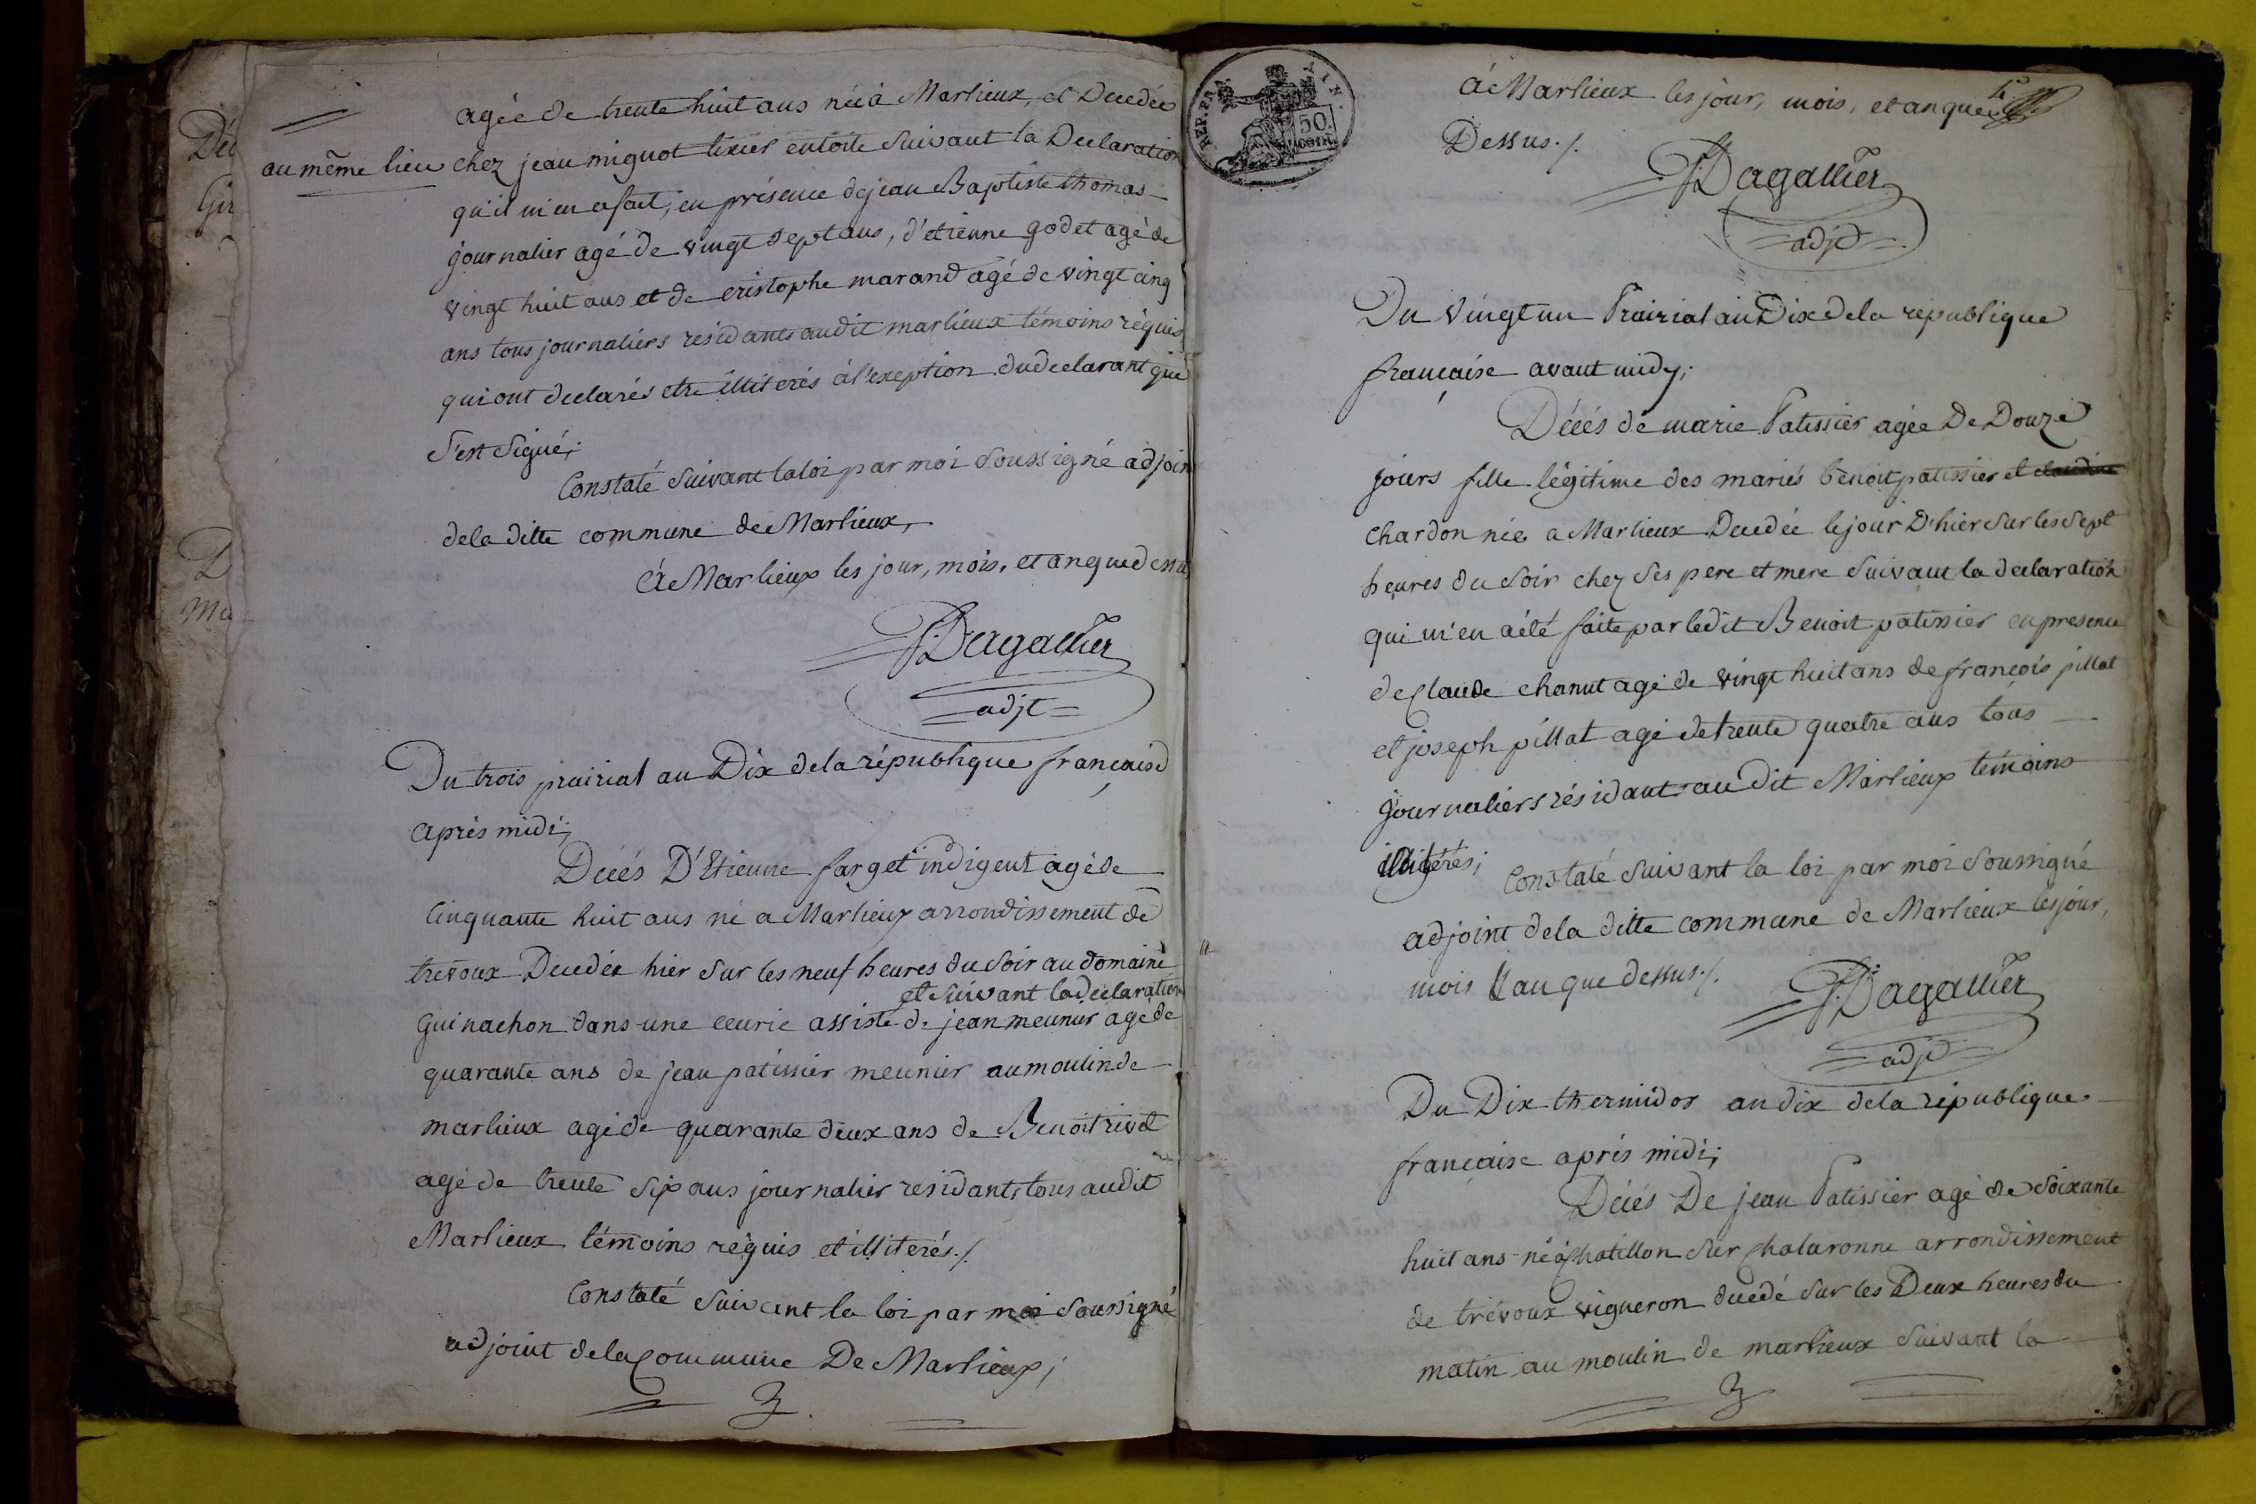 agée de trente huit ans née à Marlieux, et Decedée
au même lieu chez jean mignot tixier en toile Suivant la Declaration
qu'il m'en a fait, en présence de jean Baptiste thomas
journalier agé de vingt sept ans, d'etienne godet agé de
vingt huit ans et de cristophe marand agé de vingt cinq
ans tous journaliers residants audit marlieux témoins réquis
qui ont declarés etre illiterés à l'exeption du declarant qui
S'est Signé;
Constaté Suivant la loi par moi Soussigné adjoin
de la ditte commune de Marlieux,
à Marlieux les jour, mois, et an que dessus
Dagallier
adjt
Du trois prairial an Dix de la république française
après midi;
Décés D'Etienne farget indigent agé de
Cinquante huit ans né a Marlieux arrondissement de
trevoux Decedée hier Sur les neuf heures du Soir au domaine
et Suivant la declaration
Guinachon dans une ecurie assisté de jean meunier agé de
quarante ans de jean patissier meunier au moulin de
marlieux agé de quarante deux ans de Benoit rivet
agé de trente Six ans journalier residants tous audit
Marlieux témoins réquis et illiterés ./.
Constaté Suivant la loi par moi Soussigné
adjoint de la Commune De Marlieux;
REP. FRA.
50
CENT.
à Marlieux les jour, mois, et an que
Dessus ./.
Dagallier
adjt
Du vingt un Prairial an Dix de la république
française avant midy;
Décés de marie Patissier agée De Douze
jours fille légitime des mariés benoit patissier et claudine
chardon née a Marlieux Decedée le jour D'hier Sur les Sept
heures du Soir chez Ses pere et mere Suivant la declaration
qui m'en a été faite par ledit Benoit patissier en presence
de Claude chanut agé de vingt huit ans de françois pillat
et joseph pillat agé de trente quatre ans tous
journaliers résidants au dit Marlieux témoins
illiterés;
Constaté Suivant la loi par moi Soussigné
adjoint de la ditte commune de Marlieux les jour,
mois et an que dessus ./.
Dagallier
adjt
Du Dix thermidor an dix de la république
française après midi;
Décés De jean Patissier agé de Soixante
huit ans né à Chatillon Sur Chalaronne arrondissement
de trévoux vigneron decedé Sur les Deux heures du
matin au moulin de marlieux Suivant la